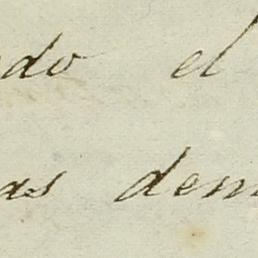 do el
as dem